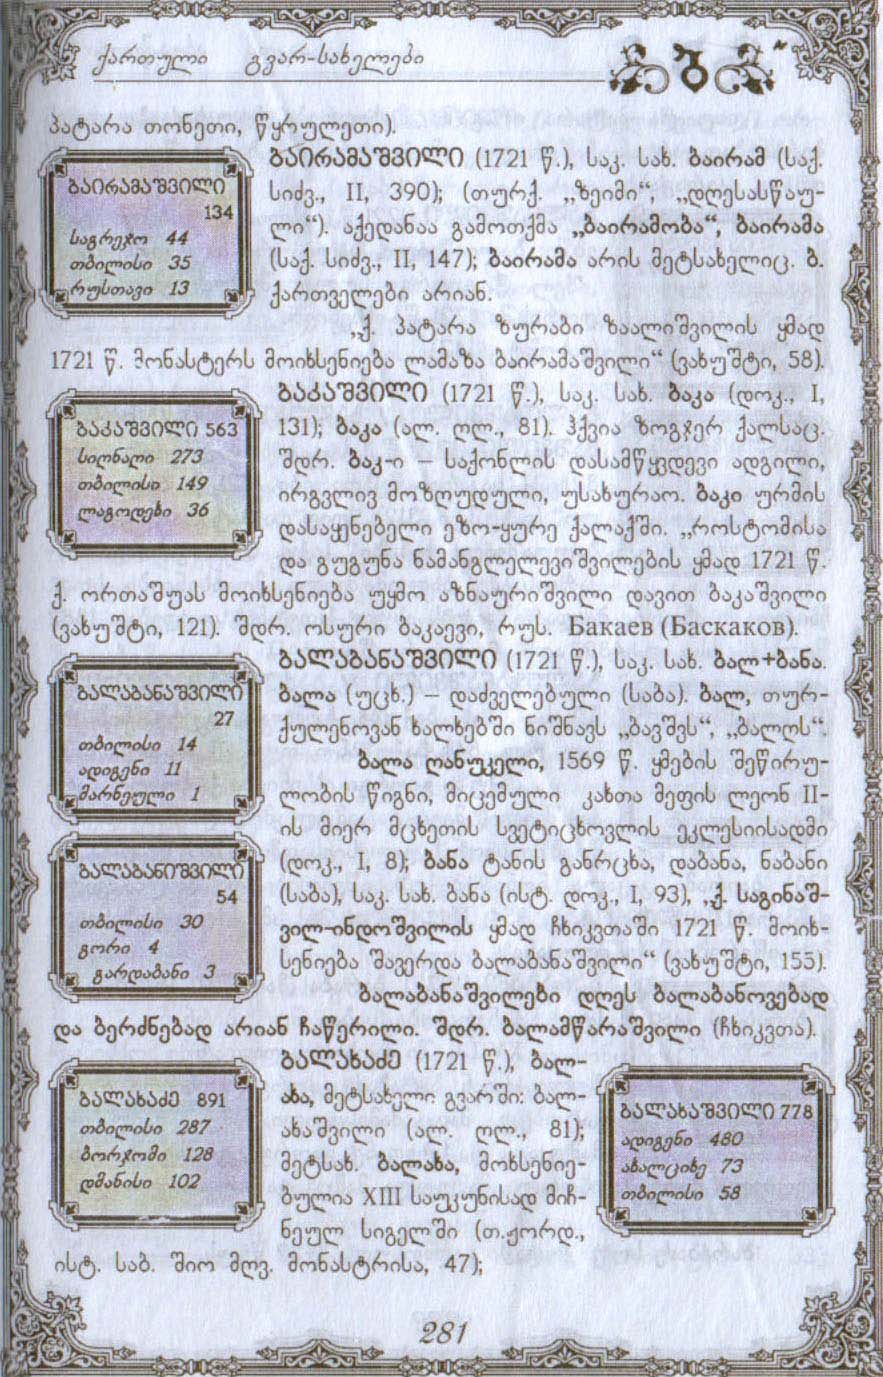 ქართული გვარ-სახელები
პატარა თონეთი, წყრულეთი).
ბაირამაშვილი
134
საგრეჯო 44
თბილისი 35
რუსთავი 13
ბაირამაშვილი (1721 წ.), საკ. სახ. ბაირამ (საქ.
სიძვ., II, 390); (თურქ. „ზეიმი“, „დღესასწაუ-
ლი“). აქედანაა გამოთქმა „ბაირამობა“, ბაირამა
(საქ. სიძვ., II, 147); ბაირამა არის მეტსახელიც. ბ.
ქართველები არიან.
„ქ. პატარა ზურაბი ზაალიშვილის ყმად
1721 წ. მონასტერს მოიხსენიება ლამაზა ბაირამაშვილი“ (ვახუშტი, 58).
ბაკაშვილი 563
სიღნაღი 273
თბილისი 149
ლაგოდეხი 36
ბაკაშვილი (1721 წ.), საკ. სახ. ბაკა (დოკ., I,
131); ბაკა (ალ. ღლ., 81). ჰქვია ზოგჯერ ქალსაც.
შდრ. ბაკ-ი – საქონლის დასამწყვდევი ადგილი,
ირგვლივ მოზღუდული, უსახურაო. ბაკი ურმის
დასაყენებელი ეზო-ყურე ქალაქში. „როსტომისა
და გუგუნა ნამანგლელევიშვილების ყმად 1721 წ.
ქ. ორთაშუას მოიხსენიება უყმო აზნაურიშვილი დავით ბაკაშვილი
(ვახუშტი, 121). შდრ. ოსური ბაკაევი, რუს. Бакаев (Баскаков).
ბალაბანაშვილი
27
თბილისი 14
ადიგენი 11
მარნეული 1
ბალაბანაშვილი (1721 წ.), საკ. სახ. ბალ+ბანა.
ბალა (უცხ.) – დაძველებული (საბა). ბალ, თურ-
ქულენოვან ხალხებში ნიშნავს „ბავშვს“, „ბალღს“
ბალა ღანუკელი, 1569 წ. ყმების შეწირუ-
ლობის წიგნი, მიცემული კახთა მეფის ლეონ II-
ის მიერ მცხეთის სვეტიცხოვლის ეკლესიისადმი
(დოკ., I, 8); ბანა ტანის განრცხა, დაბანა, ნაბანი
(საბა), საკ. სახ. ბანა (ისტ. დოკ., I, 93), „ქ. საგინაშ-
ვილ-ინდოშვილის ყმად ჩხიკვთაში 1721 წ. მოიხ-
სენიება შავერდა ბალაბანაშვილი“ (ვახუშტი, 155).
ბალაბანაშვილები დღეს ბალაბანოვებად
და ბერძნებად არიან ჩაწერილი. შდრ. ბალამწარაშვილი (ჩხიკვთა).
ბალაბანიშვილი
54
თბილისი 30
გორი 4
გარდაბანი 3
ბალახაძე 891
თბილისი 287
ბორჯომი 128
დმანისი 102
ბალახაძე (1721 წ.), ბალ-
ახა, მეტსახელი გვარში: ბალ-
ახაშვილი (ალ. ღლ., 81);
მეტსახ. ბალახა, მოხსენიე-
ბულია XIII საუკუნისად მიჩ-
ნეულ სიგელში (თ.ჟორდ.,
ისტ. საბ. შიო მღვ. მონასტრისა, 47);
ბალახაშვილი 778
ადიგენი 480
ახალციხე 73
თბილისი 58
281